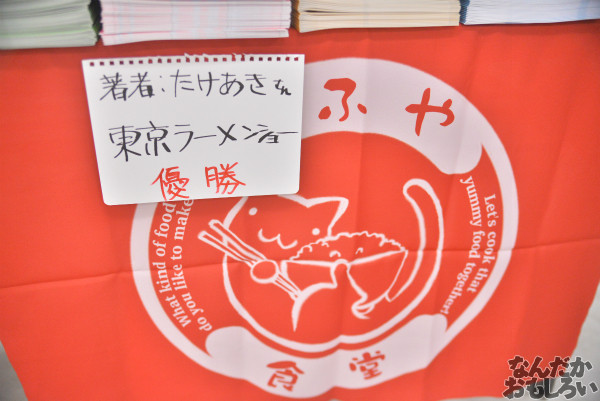 著者:たけあきさん
東京ラーメンショー
優勝
ふや
What kind of food
do you like to make
Let's cook that
yummy food together!
食堂
なんだか
おもしろい